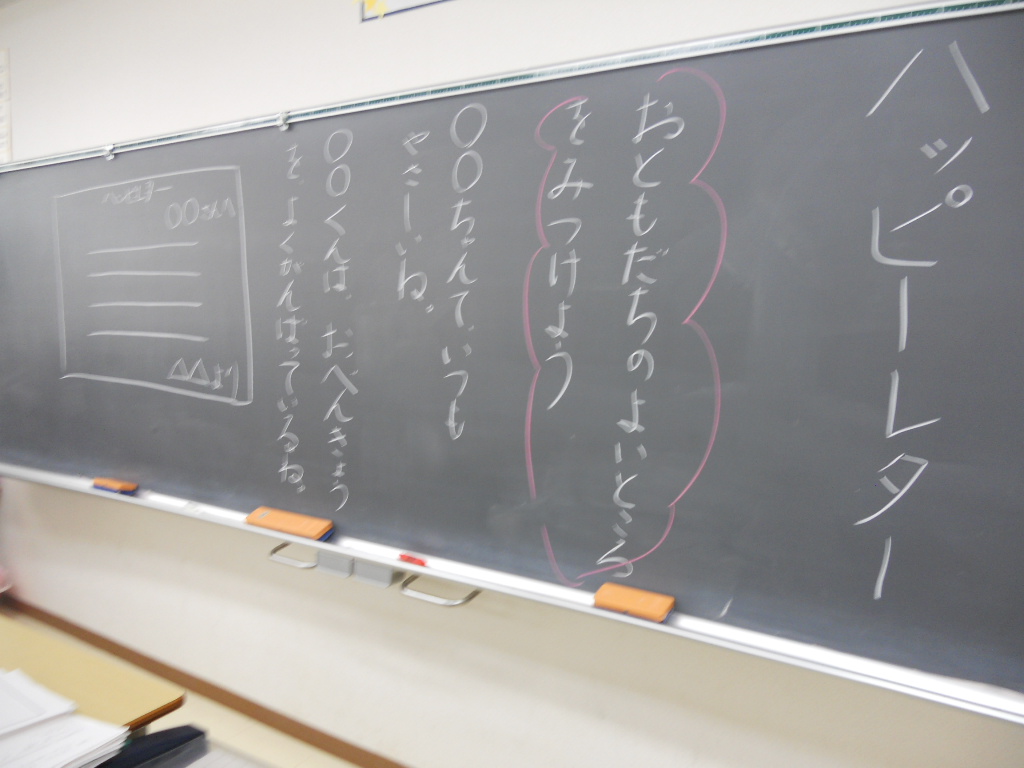 ハッピーレター
おともだちのよいところ
をみつけよう
〇〇ちゃんて、いつも
やさしいね。
〇〇くんは、おべんきょう
を、よくがんばっているね。
ハッピーレター
〇〇さんへ
△△より